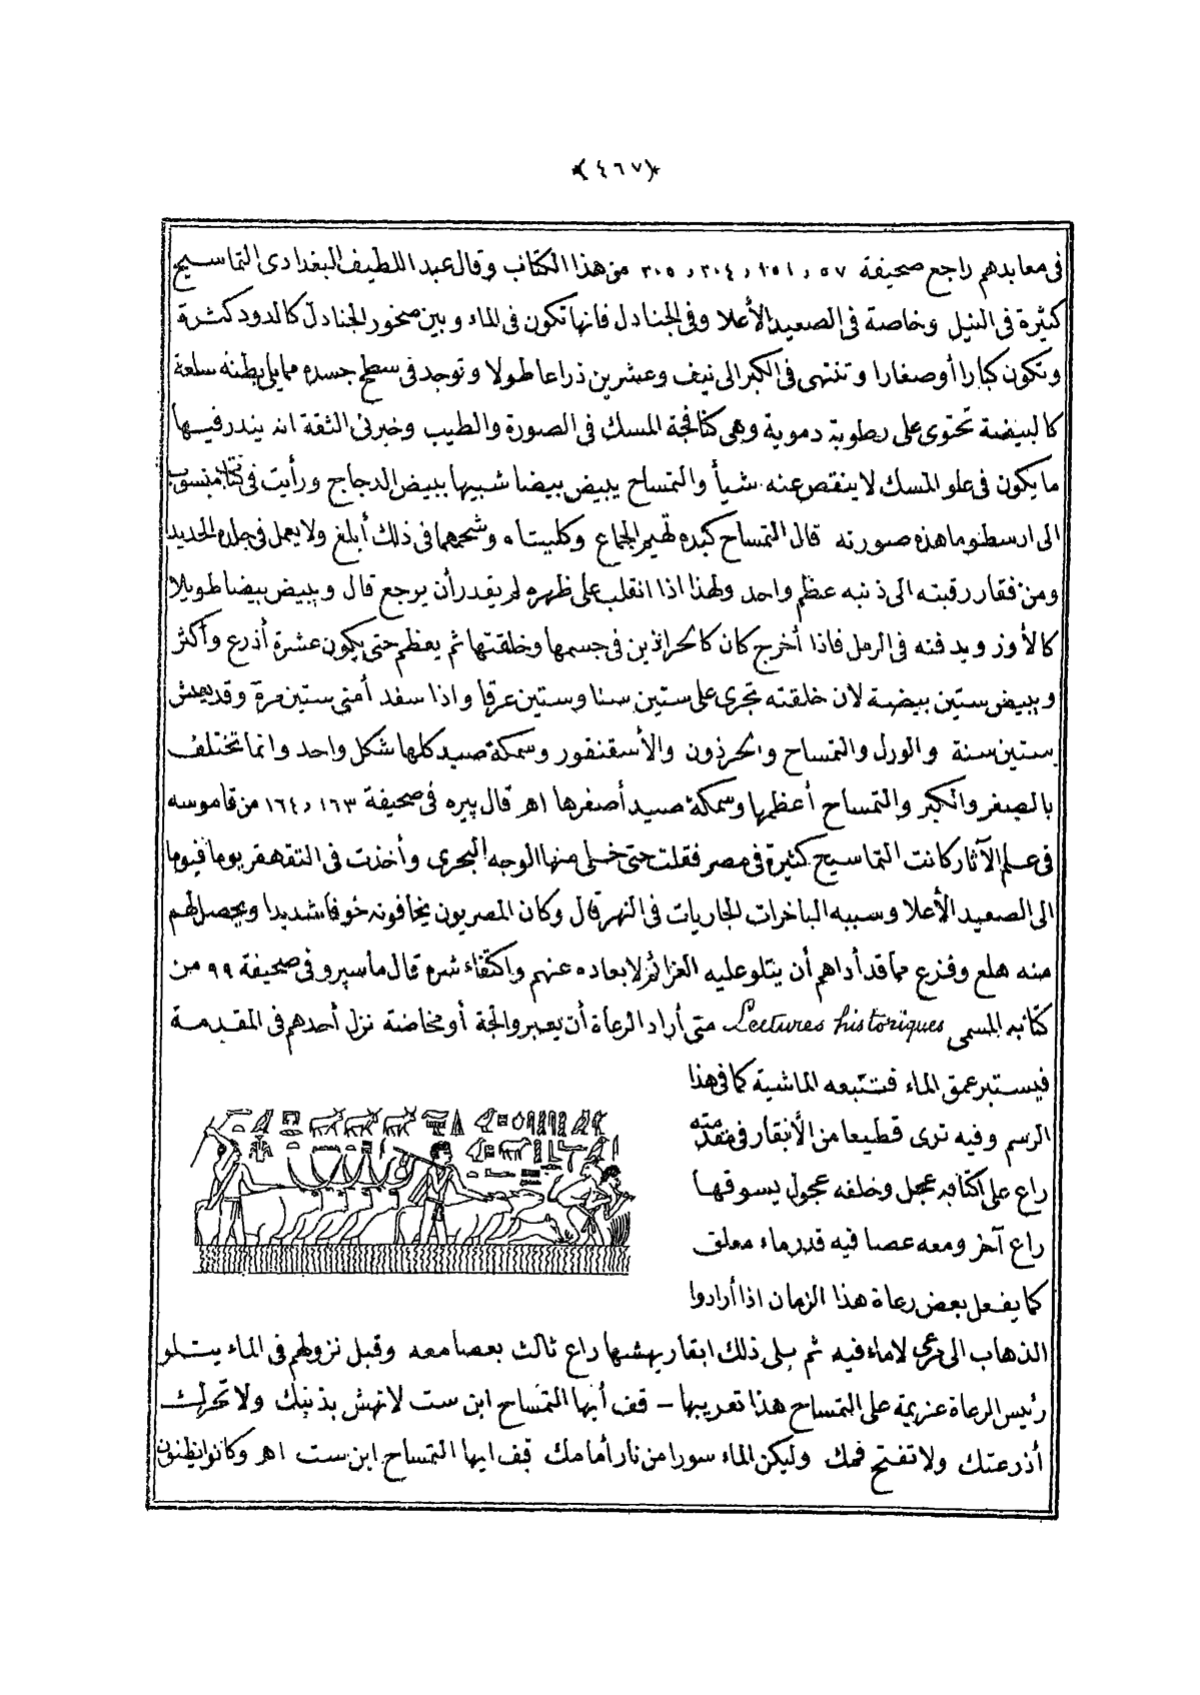 ﴿٤٦٧﴾
فى معابدهم راجع صحيفة ٥٧ و ٢٥١ و ٣٠٤ و ٣٠٥ من هذا الكتاب وقال عبد اللطيف البغدادى التماسيح
كثيرة فى النيل وخاصة فى الصعيد الأعلا وفى الجنادل فانها تكون فى الماء وبين صخور الجنادل كالدود كثرة
وتكون كبارا أو صغارا وتنتهى فى الكبر الى نيف وعشرين ذراعا طولا وتوجد فى سطح جسده مما يلى بطنه سلعة
كالبيضة تحتوى على رطوبة دموية وهى كنافجة المسك فى الصورة والطيب وخبرنى الثقة انه يندر فيها
ما يكون فى علو المسك لا ينقص عنه شيأ والتمساح يبيض بيضا شبيها ببيض الدجاج ورأيت فى كتاب منسوب
الى ارسطو ما هذه صورته قال التمساح كبده تهيج الجماع وكليتاه وشحمهما فى ذلك أبلغ ولا يعمل فى جلده الحديد
ومن فقار رقبته الى ذنبه عظم واحد ولهذا اذا انقلب على ظهره لم يقدر أن يرجع قال ويبيض بيضا طويلا
كالأوز ويدفنه فى الرمل فاذا أخرج كان كالحراذين فى جسمها وخلقتها ثم يعظم حتى يكون عشرة أذرع وأكثر
ويبيض ستين بيضة لان خلقته تجرى على ستين سنا وستين عرقا واذا سفد أمنى ستين مرة وقد يعيش
ستين سنة والورل والتمساح والحرذون والأسقنقور وسمكة صيد كلها شكل واحد وانما تختلف
بالصغر والكبر والتمساح أعظمها وسمكة صيد أصغرها اهر قال پيره فى صحيفة ١٦٣ و ١٦٤ من قاموسه
فى علم الآثار كانت التماسيح كثيرة فى مصر فقلت حتى خلى منها الوجه البحرى وأخذت فى التقهقر يوما فيوما
الى الصعيد الأعلا وسببه الباخرات الجاريات فى النهر قال وكان المصريون يخافونه خوفا شديدا ويحصل لهم
منه هلع وفزع مما قد أداهم أن يتلو عليه العزائم لابعاده عنهم واكتفاء شره قال ماسپرو فى صحيفة ٩٩ من
كتابه المسمى Lectures historiques متى أراد الرعاة أن يعبروا لجة أو مخاضة نزل أحدهم فى المقدمة
فيستبر عمق الماء فتتبعه الماشية كما فى هذا
الرسم وفيه ترى قطيعا من الأبقار فى مقدمته
راع على اكتافه عجل وخلفه عجول يسوقها
راع آخر ومعه عصا فيه قدر ماء معلق
كما يفعل بعض رعاة هذا الزمان اذا أرادوا
الذهاب الى مرعى لا ماء فيه ثم يلى ذلك ابقار يهشها راع ثالث بعصا معه وقبل نزولهم فى الماء يتلو
رئيس الرعاة عزيمة على التمساح هذا تعريبها – قف أيها التمساح ابن ست لا تهش بذنبك ولا تحرك
أذرعتك ولا تفتح فمك وليكن الماء سورا من نار أمامك قف ايها التمساح ابن ست اهر وكانوا يظنون